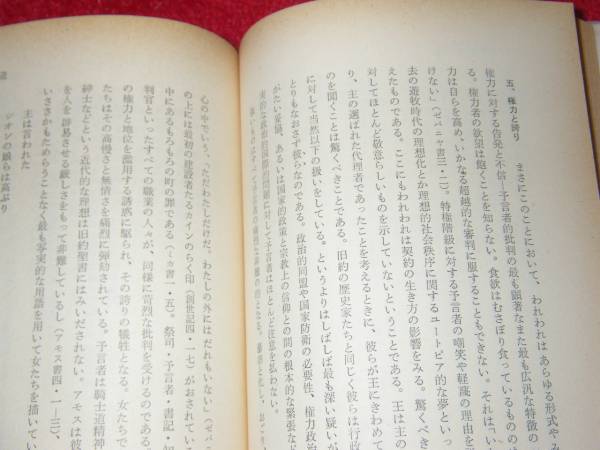 五、権力と誇り
まさにこのことにおいて、われわれはあらゆる形式や
権力に対する告発と不信―予言者的批判の最も顕著なまた最も広汎な特徴の
る。権力者の欲望は飽くことを知らない。食欲はむさぼり食っているものの
力は自らを高め、いかなる超越的な審判に服することもできない。それは「い
けない」（ゼパニヤ書三・二）。特権階級に対する予言者の嘲笑や軽蔑の理由を
去の遊牧時代の理想化とか理想的社会秩序に関するユートピア的な夢といっ
えたものである。ここにもわれわれは契約の生き方の影響をみる。驚くべき
対してほとんど敬意らしいものを示していないということである。王は主の
り、主の選ばれた代理者であったことを考えるときに、彼らが王にきわめて
のを聞くことは驚くべきことである。旧約の歴史家たちと同じく彼らは行政
に対して当然以下の扱いをしている。というよりはしばしば最も深い疑いが
とりもなおさず彼らなのである。政治的同盟や国家防衛の必要性、権力政治
がたい要請、あるいは国家的政策と宗教上の信仰との間の根本的な緊張など
実的な政治的国際的問題に対して予言者はほとんど注意を払わない。
心の中でいう、「ただわたしだけだ、わたしの外にはだれもいない」（ゼパ
の上には最初の建設者たるカインのらく印（創世記四・一七）がおされている
中にあるもろもろの町の罪である（ミカ書一・五）。祭司・予言者・書記・知
判官といったすべての職業の人々が、同様に苛烈な批判を受けるのである
の権力と地位を濫用する誘惑に駆られ、その誇りの犠牲となる。女たちで
たちはその高慢さと無情さを痛烈に弾劾されている。予言者は騎士道精神
紳士などという近代的な理想は旧約聖書にはみいだされない。アモスは彼
を人を辟易させる厳しさをもって非難しているし（アモス書四・一―三）、
いささかもためらうことなく最も写実的な用語を用いて女たちを描いてい
主は言われた
シオンの娘らは高ぶり